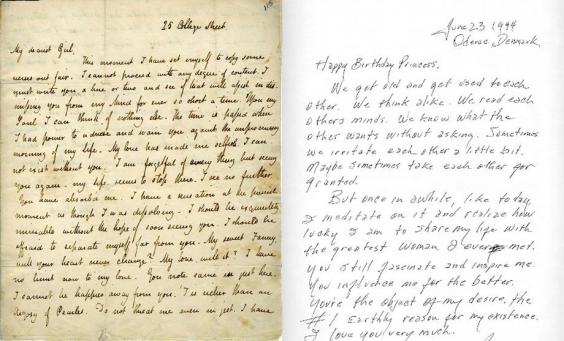 25 College Street
My dearest Girl,
This moment I have set myself to copy some
verses out fair. I cannot proceed with any degree of content. I
must write you a line or two and see if that will assist in dis
missing you from my Mind for ever so short a time. Upon my
Soul I can think of nothing else. The time is passed when
I had power to advise and warn you against the unpromising
morning of my Life. My love has made me selfish. I can
not exist without you. I am forgetful of every thing but seeing
you again. my Life seems to stop there. I see no further.
You have absorb'd me. I have a sensation at the present
moment as though I was dissolving. I should be exquisitely
miserable without the hope of soon seeing you. I should be
afraid to separate myself far from you. My sweet Fanny,
will your heart never change? My love will it? I have
no limit now to my love. You note came in just here.
I cannot be happier away from you. T is richer than an
Argosy of Pearles. Do not threat me even in jest. I have
June 23 1994
Odense, Denmark.
Happy Birthday Princess,
We get old and get used to each
other. We think alike. We read each
others minds. We know what the
other wants without asking. Sometimes
we irritate each other a little bit.
Maybe sometimes take each other for
granted.
But once in awhile, like today,
I meditate on it and realize how
lucky I am to share my life with
the greatest woman I ever met.
You still fascinate and inspire me
You influence me for the better.
You're the object of my desire, the
#1 Earthly reason for my existence.
I love you very much.